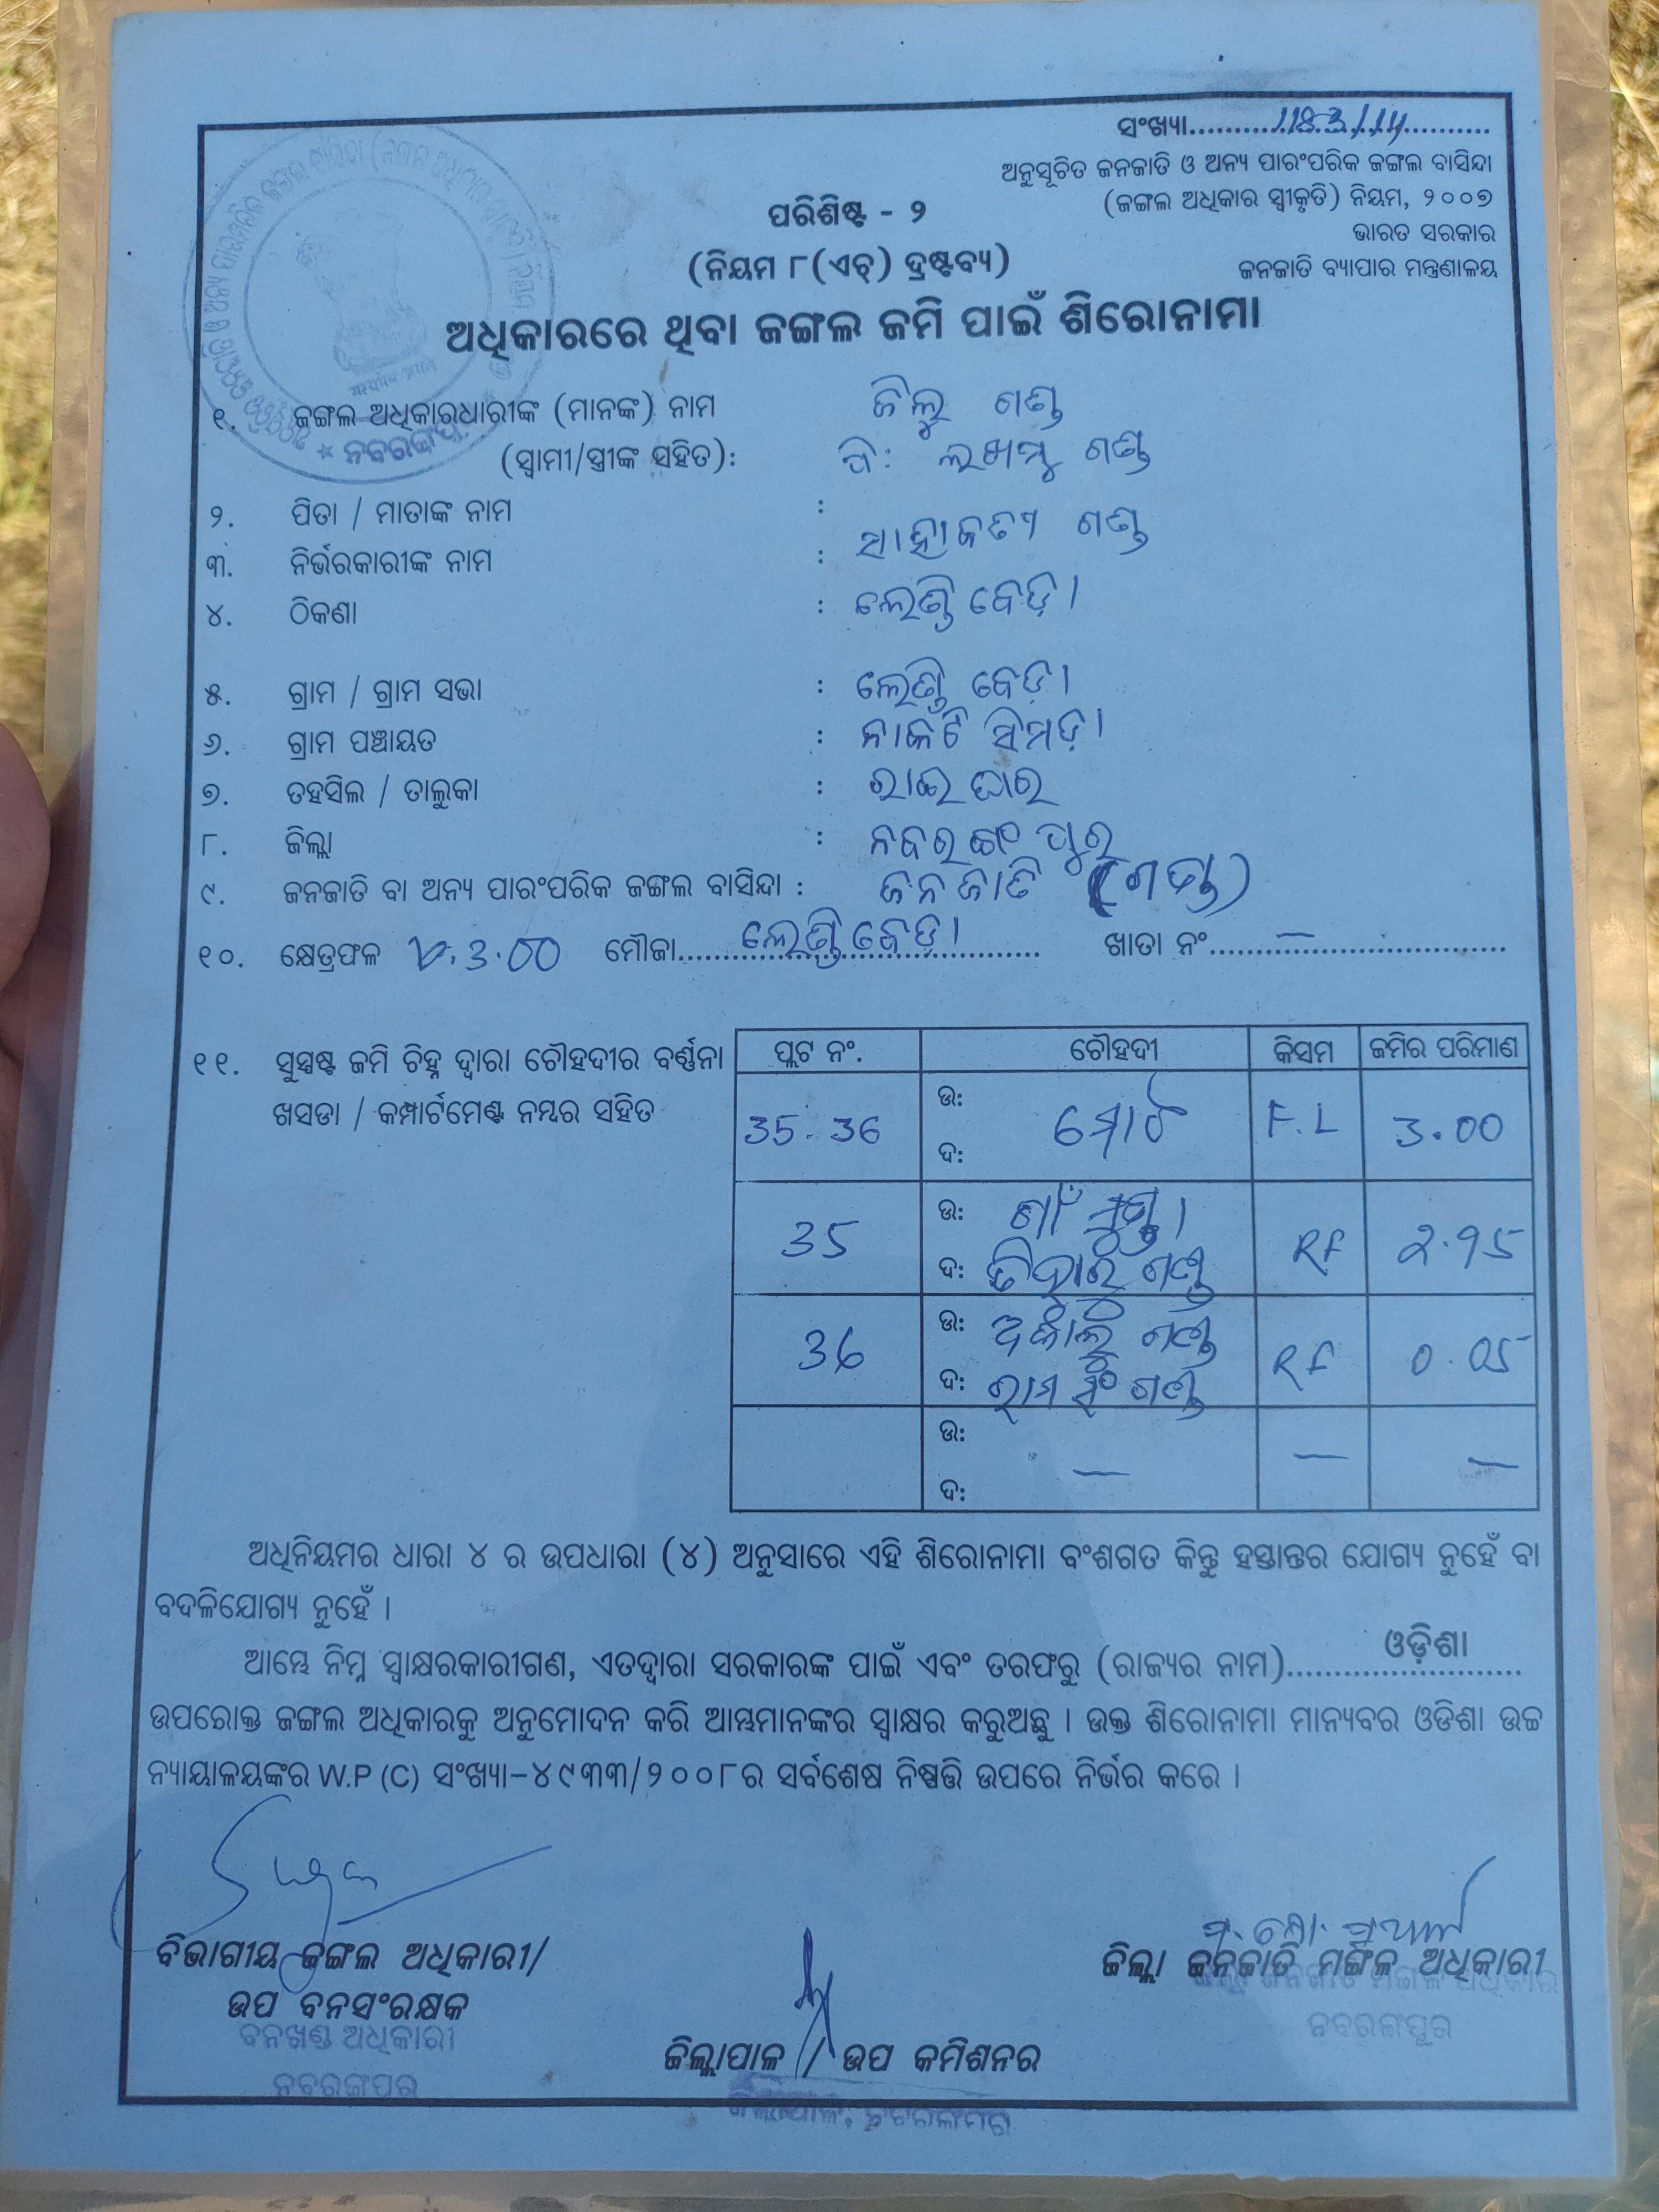 ସଂଖ୍ୟା..........1183/14..........
ଅନୁସୂଚିତ ଜନଜାତି ଓ ଅନ୍ୟ ପାରଂପରିକ ଜଙ୍ଗଲ ବାସିନ୍ଦା
(ଜଙ୍ଗଲ ଅଧିକାର ସ୍ୱୀକୃତି) ନିୟମ, ୨୦୦୭
ଭାରତ ସରକାର
ଜନଜାତି ବ୍ୟାପାର ମନ୍ତ୍ରଣାଳୟ
ପରିଶିଷ୍ଟ - ୨
(ନିୟମ ୮(ଏଚ୍) ଦ୍ରଷ୍ଟବ୍ୟ)
ଅଧିକାରରେ ଥିବା ଜଙ୍ଗଲ ଜମି ପାଇଁ ଶିରୋନାମା
୧. ଜଙ୍ଗଲ ଅଧିକାରଧାରୀଙ୍କ (ମାନଙ୍କ) ନାମ ଜିଲୁ ଗଣ୍ଡ
(ସ୍ୱାମୀ/ସ୍ତ୍ରୀଙ୍କ ସହିତ): ପି: ଲଖମୁ ଗଣ୍ଡ
୨. ପିତା / ମାତାଙ୍କ ନାମ :
୩. ନିର୍ଭରକାରୀଙ୍କ ନାମ : ଗଣ୍ଡ
୪. ଠିକଣା : ଲେଣ୍ଡିବେଡ଼ା
୫. ଗ୍ରାମ / ଗ୍ରାମ ସଭା : ଲେଣ୍ଡିବେଡ଼ା
୬. ଗ୍ରାମ ପଞ୍ଚାୟତ : ନାକଟି ସିମଡ଼ା
୭. ତହସିଲ / ତାଲୁକା : ରାଇଘର
୮. ଜିଲ୍ଲା : ନବରଙ୍ଗପୁର
୯. ଜନଜାତି ବା ଅନ୍ୟ ପାରଂପରିକ ଜଙ୍ଗଲ ବାସିନ୍ଦା : ଜନଜାତି (ଗଣ୍ଡ)
୧୦. କ୍ଷେତ୍ରଫଳ 3.00 ମୌଜା..........ଲେଣ୍ଡିବେଡ଼ା.......... ଖାତା ନଂ..........—..........
୧୧. ସୁସ୍ପଷ୍ଟ ଜମି ଚିହ୍ନ ଦ୍ୱାରା ଚୌହଦୀର ବର୍ଣ୍ଣନା
ଖସଡା / କମ୍ପାର୍ଟମେଣ୍ଟ ନମ୍ବର ସହିତ
ପ୍ଲଟ ନଂ. ଚୌହଦୀ କିସମ ଜମିର ପରିମାଣ
35.36 ଉ: ଦ: ମୋଟ F.L 3.00
35 ଉ: ଗାଁ
ଦ: ଗଣ୍ଡ RF 2.95
36 ଉ: ଅକାଲୁ ଗଣ୍ଡ
ଦ: ରାମ ସିଂ ଗଣ୍ଡ RF 0.05
ଉ: ଦ: — — —
ଅଧିନିୟମର ଧାରା ୪ ର ଉପଧାରା (୪) ଅନୁସାରେ ଏହି ଶିରୋନାମା ବଂଶଗତ କିନ୍ତୁ ହସ୍ତାନ୍ତର ଯୋଗ୍ୟ ନୁହେଁ ବା
ବଦଳିଯୋଗ୍ୟ ନୁହେଁ ।
ଆମ୍ଭେ ନିମ୍ନ ସ୍ୱାକ୍ଷରକାରୀଗଣ, ଏତଦ୍ୱାରା ସରକାରଙ୍କ ପାଇଁ ଏବଂ ତରଫରୁ (ରାଜ୍ୟର ନାମ)..........ଓଡ଼ିଶା..........
ଉପରୋକ୍ତ ଜଙ୍ଗଲ ଅଧିକାରକୁ ଅନୁମୋଦନ କରି ଆମ୍ଭମାନଙ୍କର ସ୍ୱାକ୍ଷର କରୁଅଛୁ । ଉକ୍ତ ଶିରୋନାମା ମାନ୍ୟବର ଓଡିଶା ଉଚ୍ଚ
ନ୍ୟାୟାଳୟଙ୍କର W.P (C) ସଂଖ୍ୟା–୪୯୩୩/୨୦୦୮ର ସର୍ବଶେଷ ନିଷ୍ପତ୍ତି ଉପରେ ନିର୍ଭର କରେ ।
ବିଭାଗୀୟ ଜଙ୍ଗଲ ଅଧିକାରୀ/
ଉପ ବନସଂରକ୍ଷକ
ବନଖଣ୍ଡ ଅଧିକାରୀ
ନବରଙ୍ଗପୁର
ଜିଲ୍ଲାପାଳ / ଉପ କମିଶନର
ଜିଲ୍ଲାପାଳ, ନବରଙ୍ଗପୁର
ଜିଲ୍ଲା ଜନଜାତି ମଙ୍ଗଳ ଅଧିକାରୀ
ଜିଲ୍ଲା ଜନଜାତି ମଙ୍ଗଳ ଅଧିକାରୀ
ନବରଙ୍ଗପୁର